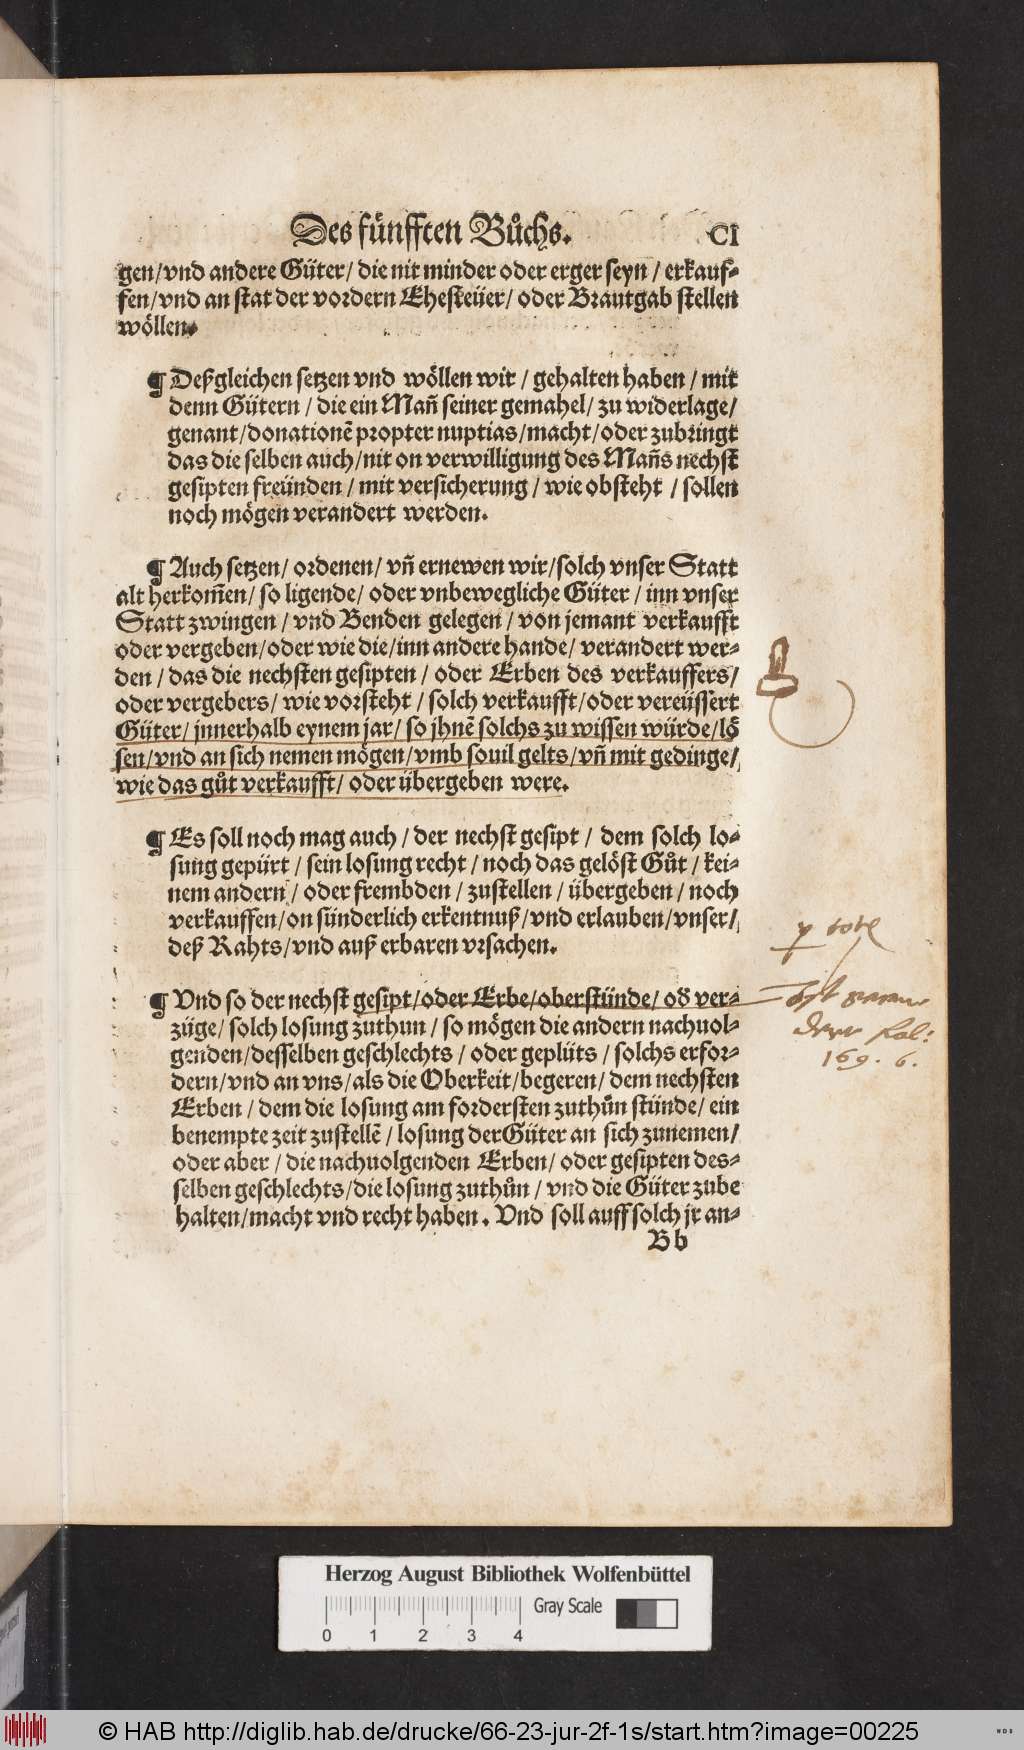 Des fünfften Bůchs. CI
gen/vnd andere Güter/ die nit minder oder erger seyn / erkauf-
fen/vnd an stat der vordern Ehesteüer/ oder Brautgab stellen
wöllen.
¶ Deßgleichen setzen vnd wöllen wir / gehalten haben / mit
denn Gütern / die ein Man̄ seiner gemahel/ zu widerlage/
genant/donationē propter nuptias/macht/oder zubringt
das die selben auch/nit on verwilligung des Man̄s nechst
gesipten freünden / mit versicherung / wie obsteht / sollen
noch mögen verandert werden.
¶ Auch setzen/ ordenen/ vn̄ ernewen wir/solch vnser Statt
alt herkom̄en/ so ligende/ oder vnbewegliche Güter / inn vnser
Statt zwingen / vnd Benden gelegen / von jemant verkaufft
oder vergeben/oder wie die/inn andere hande/ verandert wer-
den / das die nechsten gesipten / oder Erben des verkauffers/
oder vergebers/ wie vorsteht / solch verkaufft/oder vereüssert
Güter/ jnnerhalb eynem jar/ so jhnē solchs zu wissen würde/lö
sen/vnd an sich nemen mögen/vmb souil gelts/vn̄ mit gedinge/
wie das gůt verkaufft/ oder übergeben were.
¶ Es soll noch mag auch / der nechst gesipt / dem solch lo-
sung gepürt / sein losung recht / noch das gelöst Gůt / kei-
nem andern / oder frembden / zustellen / übergeben / noch
verkauffen/on sünderlich erkentnuß/vnd erlauben/vnser/
deß Rahts/vnd auß erbaren vrsachen.
¶ Vnd so der nechst gesipt/oder Erbe/oberstünde/ od̕ ver-
züge/ solch losung zuthun / so mögen die andern nachuol-
genden/desselben geschlechts / oder geplüts / solchs erfor-
dern/vnd an vns/als die Oberkeit/begeren/ dem nechsten
Erben / dem die losung am fordersten zuthůn stünde/ ein
benempte zeit zustellē / losung der Güter an sich zunemen/
oder aber / die nachuolgenden Erben/ oder gesipten des-
selben geschlechts/die losung zuthůn / vnd die Güter zube
halten/macht vnd recht haben. Vnd soll auff solch jr an-
Bb
fol:
169. 6.
Herzog August Bibliothek Wolfenbüttel
Gray Scale
0 1 2 3 4
© HAB http://diglib.hab.de/drucke/66-23-jur-2f-1s/start.htm?image=00225
WDB